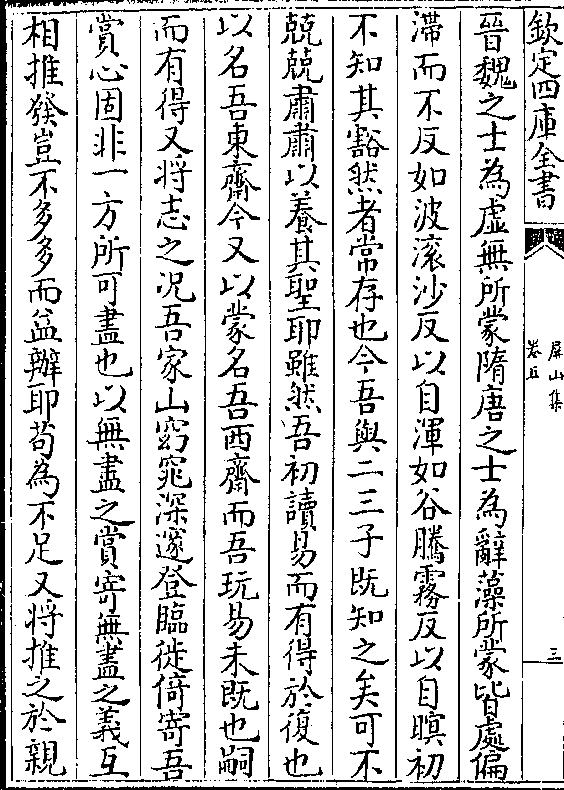 欽定四庫全書
屏山集
卷五
三
晉魏之士為虛無所蒙隋唐之士為辭藻所蒙皆處偏
滯而不反如波滚沙反以自渾如谷騰霧反以自暝初
不知其豁然者常存也今吾與二三子既知之矣可不
兢兢肅肅以養其聖耶雖然吾初讀易而有得於復也
以名吾東齋今又以蒙名吾西齋而吾玩易未既也嗣
而有得又将志之况吾家山窈窕深邃登臨徙倚寄吾
賞心固非一方所可盡也以無盡之賞寄無盡之義互
相推發豈不多多而益辦耶苟為不足又将推之於親